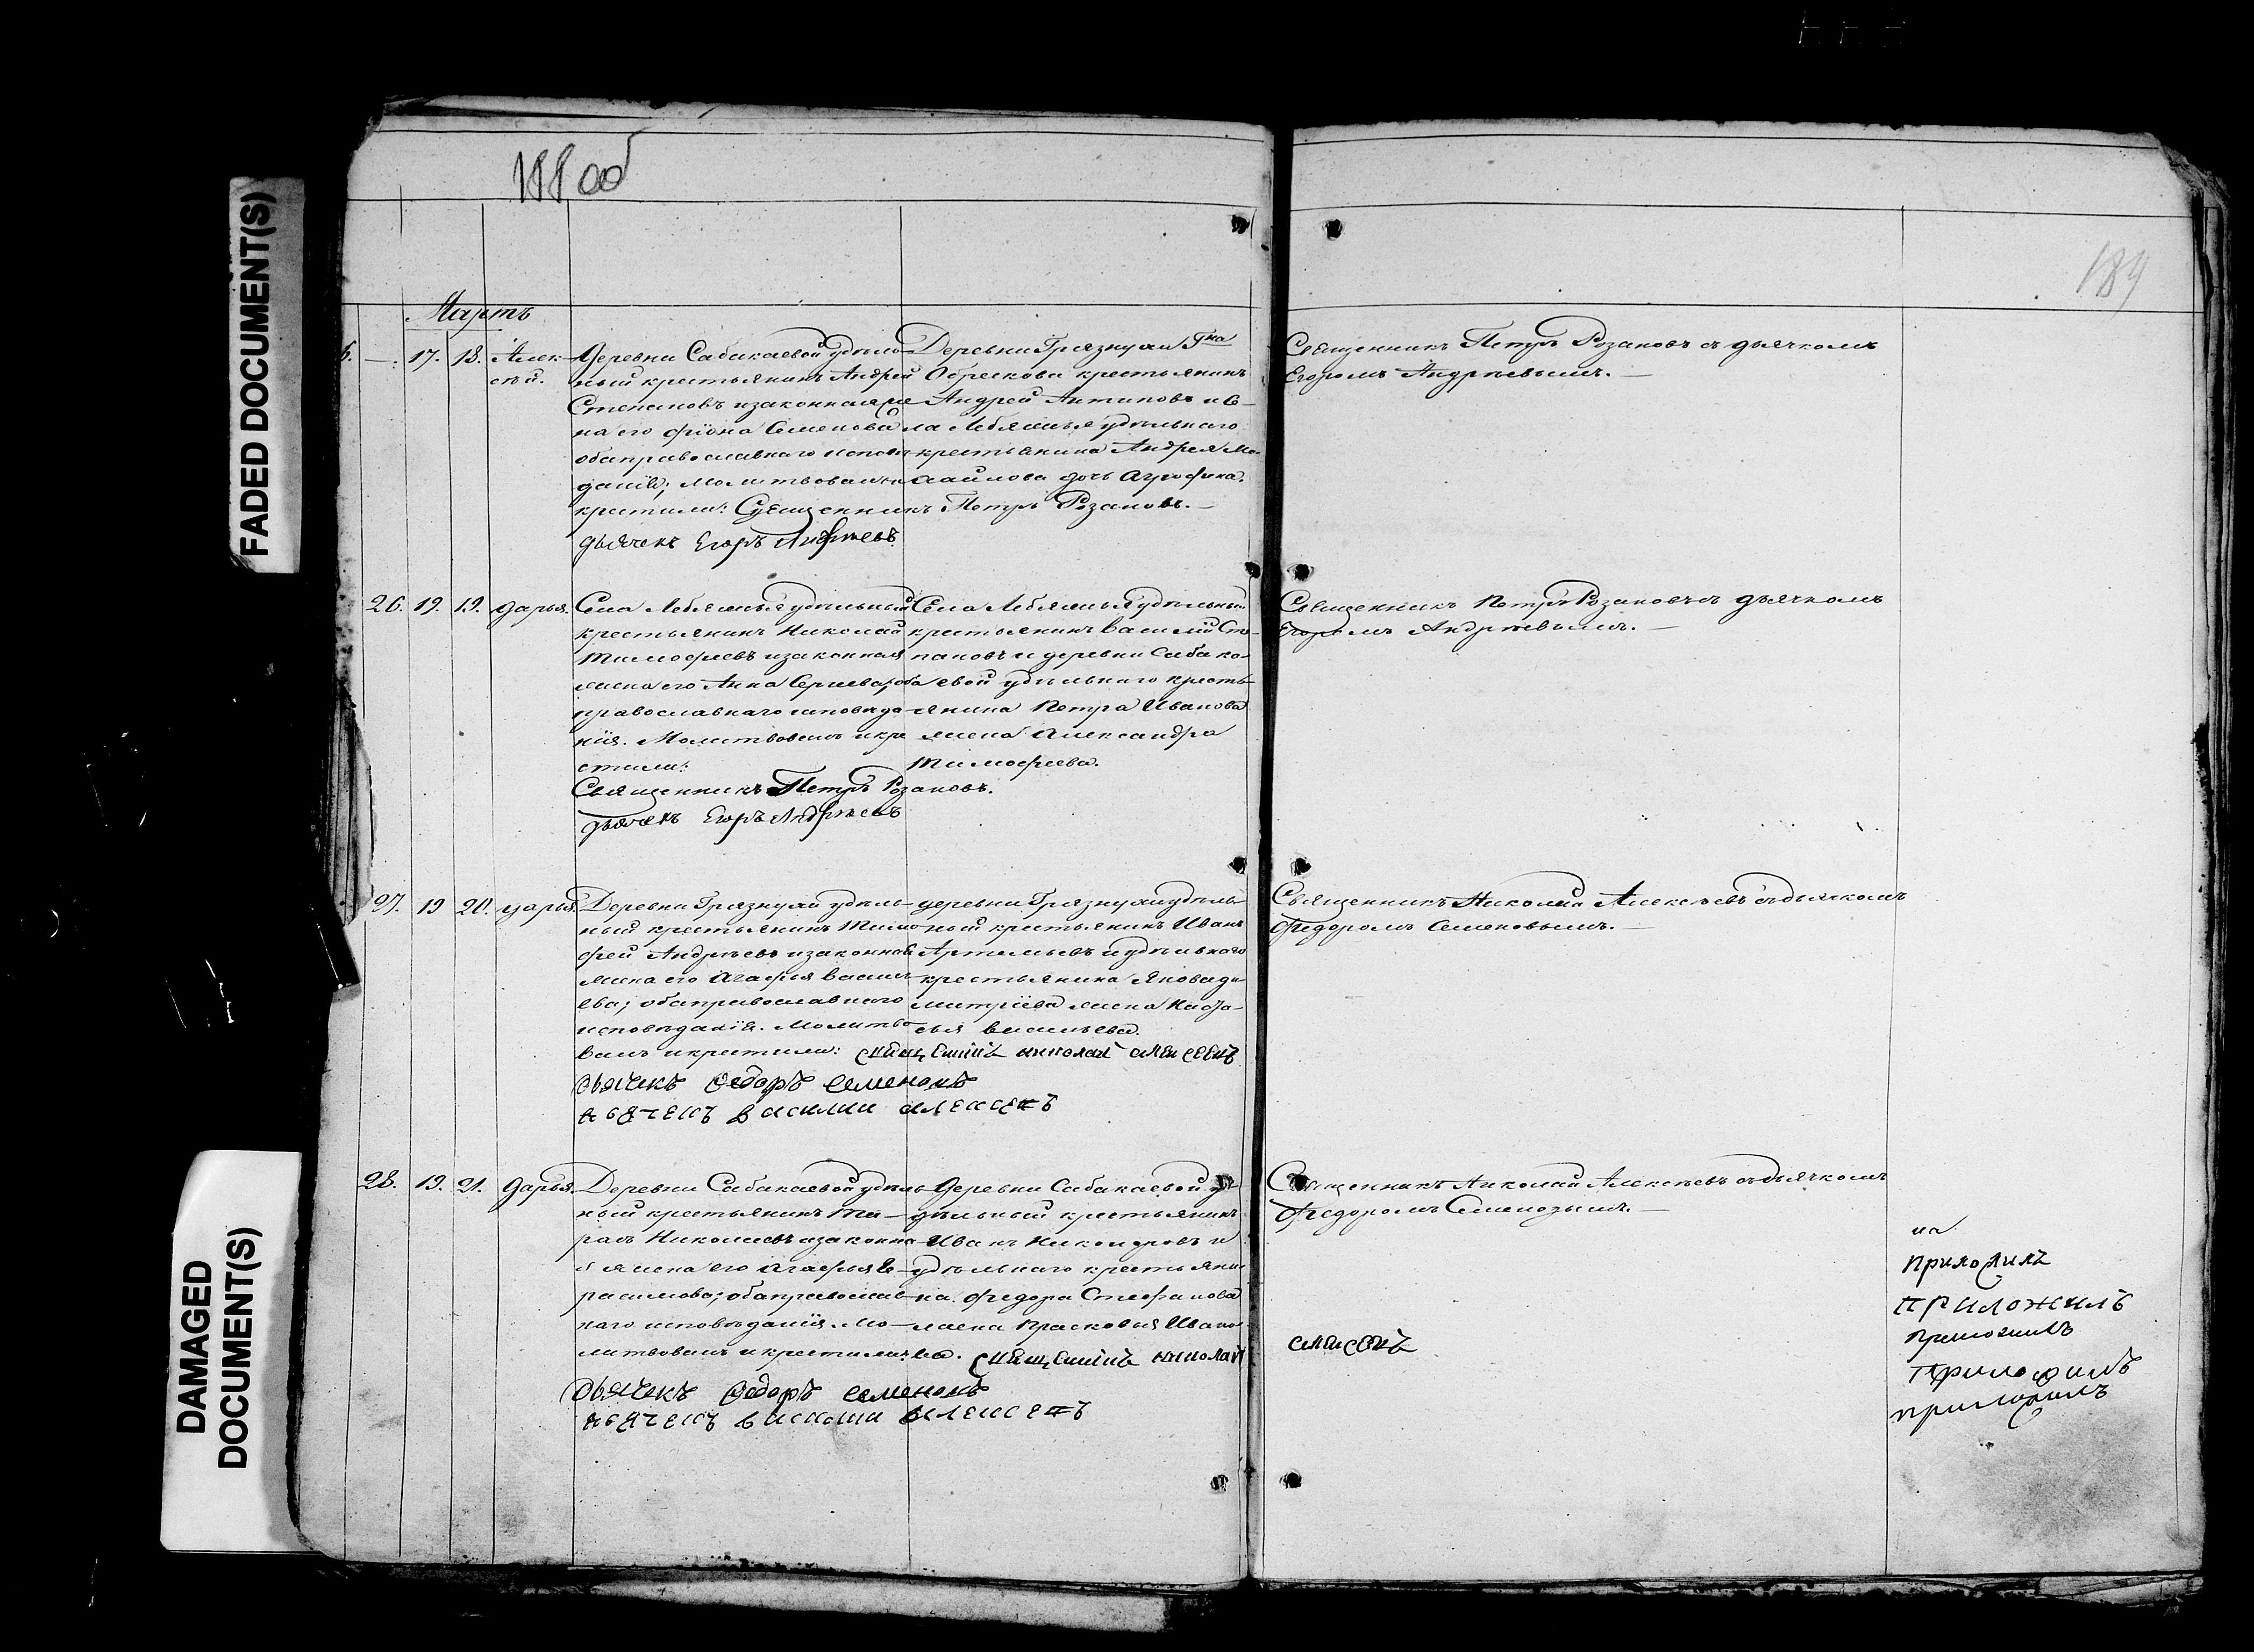 188 об
189
Мартъ
5. — 17. 18. Алек-
сѣй.
Деревни Сабакаевой удѣль-
ный крестьянинъ Андрей
Степановъ и законная же-
на его Фіона Семенова
оба православнаго исповѣ-
данія; Молитвовали и
крестили: Священникъ Петръ Розановъ.
дьячекъ Егоръ Андреевъ
Деревни Грязнухи Гна
Обрескова крестьянинъ
Андрей Антиповъ и С-
ла Лебяжья удѣльнаго
крестьянина Андрея Ми-
хайлова дочь Агрофена.
Священникъ Петръ Розановъ съ дьячкомъ
Егоромъ Андрѣевымъ.
26. 19. 19. Дарья.
Села Лебяжья удѣльный
крестьянинъ Николай
Тимофеевъ и законная
жена его Анна Сергиева, оба
православнаго исповѣда-
нія. Молитвовалъ и кре
стили:
Священникъ Петръ Розановъ.
дьячекъ Егоръ Андрѣевъ
Села Лебяжья удѣльный
крестьянинъ Василій Сте-
пановъ и деревни Сабака-
евой удѣльнаго кресть-
янина Петра Иванова
жена Александра
Тимофеева.
Священникъ Петръ Розановъ съ дьячкомъ
Егоромъ Андрѣевымъ.
27. 19 20. Дарья.
Деревни Грязнухи удѣль-
ный крестьянинъ Тимо
фей Андрѣевъ и законная
жена его Агафья Василь-
ева; оба православнаго
исповѣданія. Молитво
валъ и крестили: священникъ николай алексеевъ
дьячекъ Федоръ Семеновъ
дьячекъ василии алексеевъ
деревни Грязнухи удѣль-
ной крестьянинъ Иванъ
Артемьевъ и удѣльнаго
крестьянина Якова Ди-
митріева жена Наста-
сья Васильева.
Священникъ Николай Алексѣевъ съ дьячкомъ
Федоромъ Семеновымъ.
28. 19. 21. Дарья.
Деревни Сабакаевой удѣль-
ный крестьянинъ Та-
расъ Николаевъ и законна-
я жена его Агафья Ге-
расимова; оба православ-
наго исповѣданія. Мо-
литвовалъ и крестили: священникъ николай
алексеевъ
дьячекъ Федоръ Семеновъ
дьячекъ василии алексеевъ
Деревни Сабакаевой у-
дѣльный крестьянинъ
Иванъ Никифоровъ и
удѣльнаго крестьяни
на Федора Стефанова
жена Прасковья Ивано-
ва.
Священникъ Николай Алексѣевъ съ дьячкомъ
Федоромъ Семеновымъ.
на
приложилъ
приложилъ
приложилъ
приложилъ
приложилъ
FADED DOCUMENT(S)
DAMAGED
DOCUMENT(S)